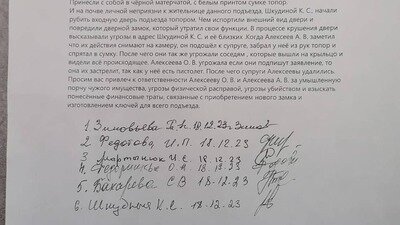 Принесли с собой в чёрной матерчатой, с белым принтом сумке топор.
И на почве личной неприязни к жительнице данного подъезда, Шкудиной К. С., начали
рубить входную дверь подъезда топором. Чем испортили внешний вид двери и
повредили дверной замок, который утратил свои функции. В процессе крушения двери
высказывали угрозы в адрес Шкудиной К. С. и её близких. Когда Алексеева А. В. заметила
что их действия снимают на камеру, он подошёл к супруге, забрал у неё из рук топор и
спрятал в сумку. После чего они так же угрожали соседям, которые вышли на крыльцо и
видели всё происходящее. Алексеев О. В. угрожала если они подпишут заявление, то
она их застрелит, так как у неё есть пистолет. После чего супруги Алексеевы удалились.
Просим вас привлечь к ответственности Алексееву О. В. и Алексеева А. В. за умышленную
порчу чужого имущества, угрозы физической расправой, угрозы убийством и взыскать
понесённые финансовые траты, связанные с приобретением нового замка и
изготовлением ключей для всего подъезда.
1 Зиновьева 18.12.23
2. Федотова И. П. 18.12.23
3 Мартынюк И. С. 18.12.23
4. О. 18.12.23
5. Бакарева С В 18-12-23
6. Шкудина К. С. 18-12-23